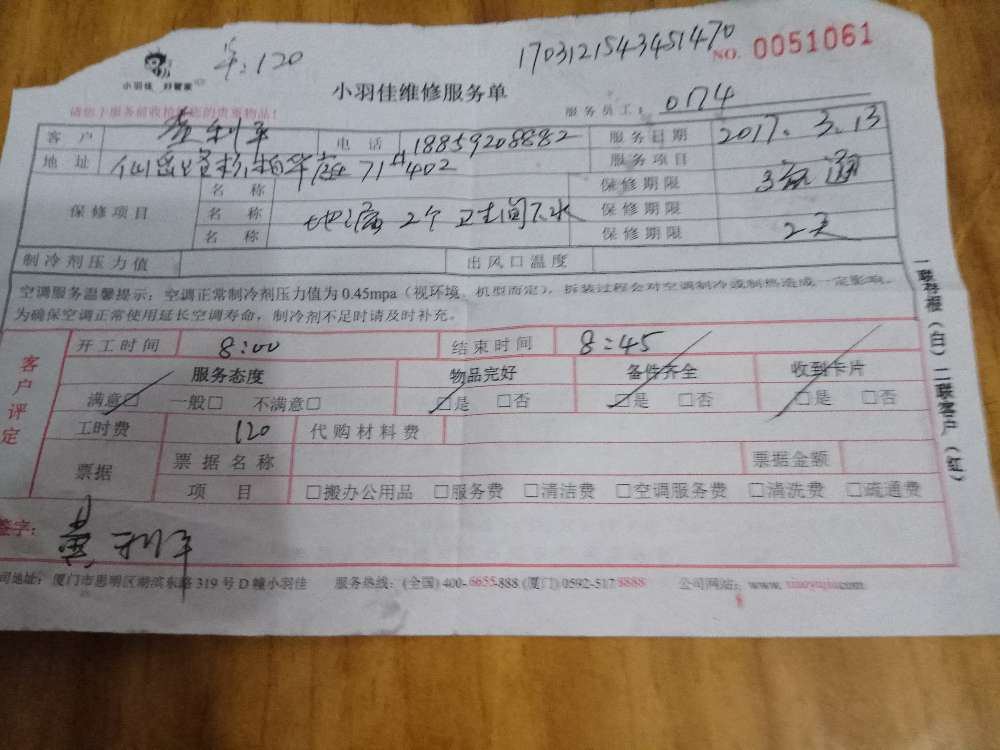 1703121543451470
单:120
NO. 0051061
小羽佳 好管家
小羽佳维修服务单
请您于服务前收拾好您的贵重物品!
服务员工: 0174
客户 黄利平 电话 18859208882 服务日期 2017.3.13
地址 71#402 服务项目 疏通
保修项目 名称 保修期限
名称 地漏2个 卫生间下水 保修期限
名称 保修期限 2天
制冷剂压力值 出风口温度
空调服务温馨提示:空调正常制冷剂压力值为0.45mpa(视环境、机型而定),拆装过程会对空调制冷或制热造成一定影响。
为确保空调正常使用延长空调寿命,制冷剂不足时请及时补充。
客户评定
开工时间 8:00 结束时间 8:45
服务态度 物品完好 备件齐全 收到卡片
满意□ 一般□ 不满意□ □是 □否 □是 □否 □是 □否
工时费 120 代购材料费
票据 票据名称 票据金额
项目 □搬办公用品 □服务费 □清洁费 □空调服务费 □清洗费 □疏通费
签字: 黄利平
司地址:厦门市思明区前滨东路319号D幢小羽佳 服务热线:(全国)400-6655-888 (厦门)0592-5178888 公司网站:www.xiaoyujia.com
一联存根(白)二联客户(红)